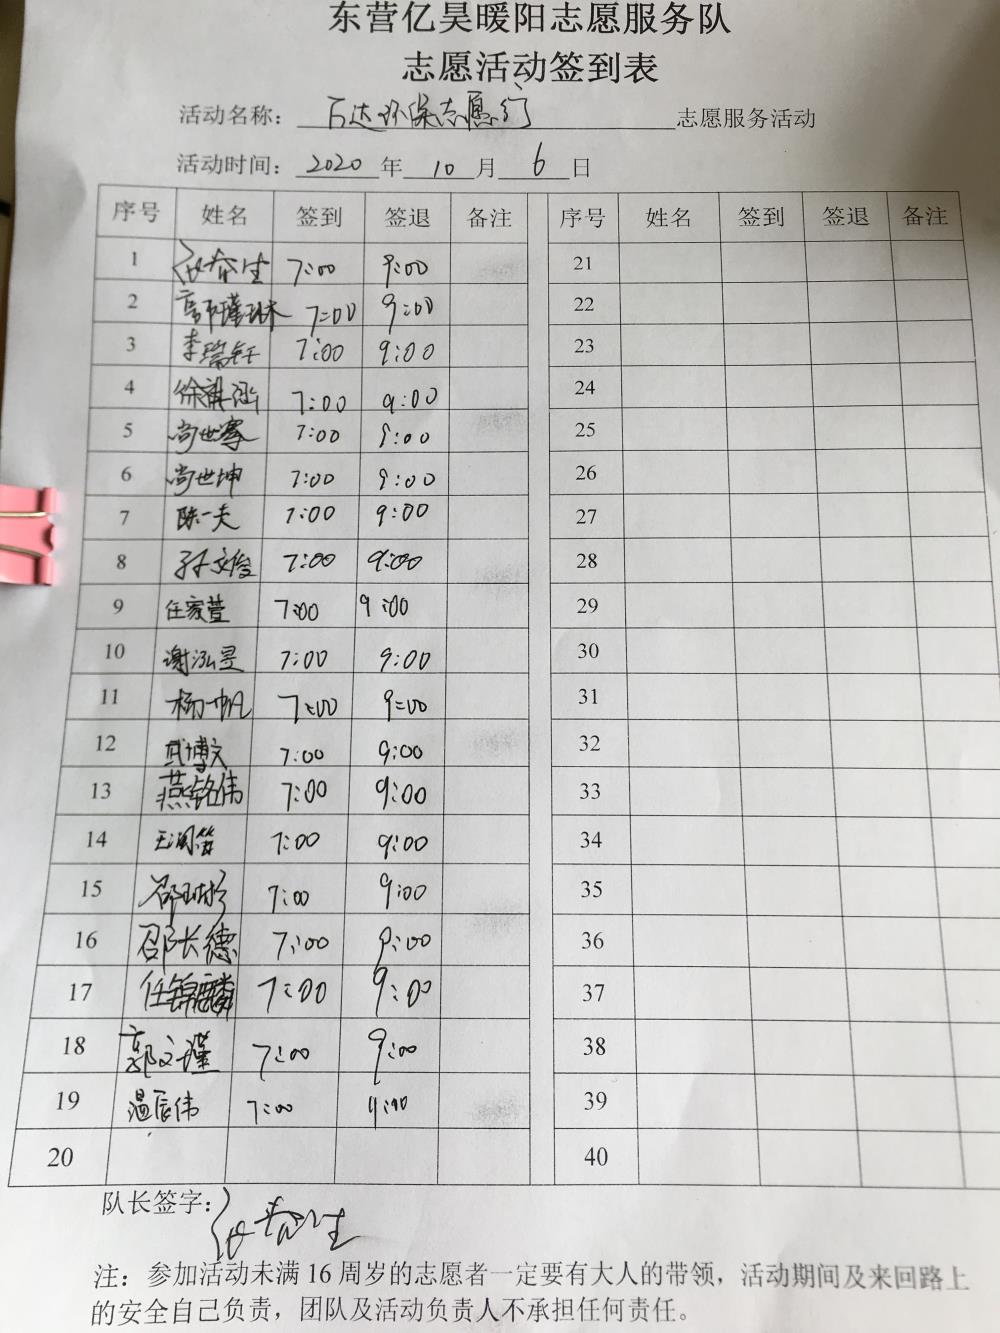 东营亿昊暖阳志愿服务队
志愿活动签到表
活动名称：万达环保志愿行志愿服务活动
活动时间：2020年10月6日
序号 姓名 签到 签退 备注 序号 姓名 签到 签退 备注
1 7:00 9:00 21
2 郭瑾琳 7:00 9:00 22
3 李瑞钰 7:00 9:00 23
4 徐涵 7:00 9:00 24
5 尚世骞 7:00 9:00 25
6 尚世坤 7:00 9:00 26
7 陈一夫 7:00 9:00 27
8 孙文俊 7:00 9:00 28
9 任家萱 7:00 9:00 29
10 谢泓昱 7:00 9:00 30
11 杨一帆 7:00 9:00 31
12 武博文 7:00 9:00 32
13 燕铭伟 7:00 9:00 33
14 7:00 9:00 34
15 7:00 9:00 35
16 邵长德 7:00 9:00 36
17 任锦麟 7:00 9:00 37
18 郭文瑾 7:00 9:00 38
19 温辰伟 7:00 9:00 39
20 40
队长签字：
注：参加活动未满16周岁的志愿者一定要有大人的带领，活动期间及来回路上
的安全自己负责，团队及活动负责人不承担任何责任。